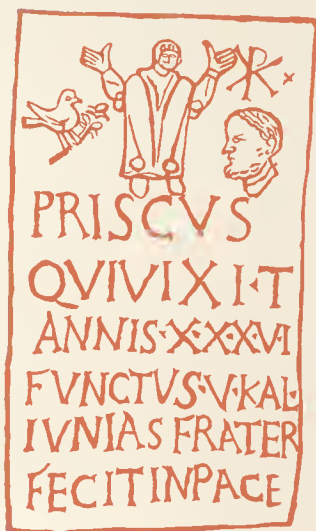 ☧
PRISCVS
QVIVIXI·T
ANNIS·X·X·X·VI
FVNCTVS·V·KAL·
IVNIAS FRATER
FECIT INPACE